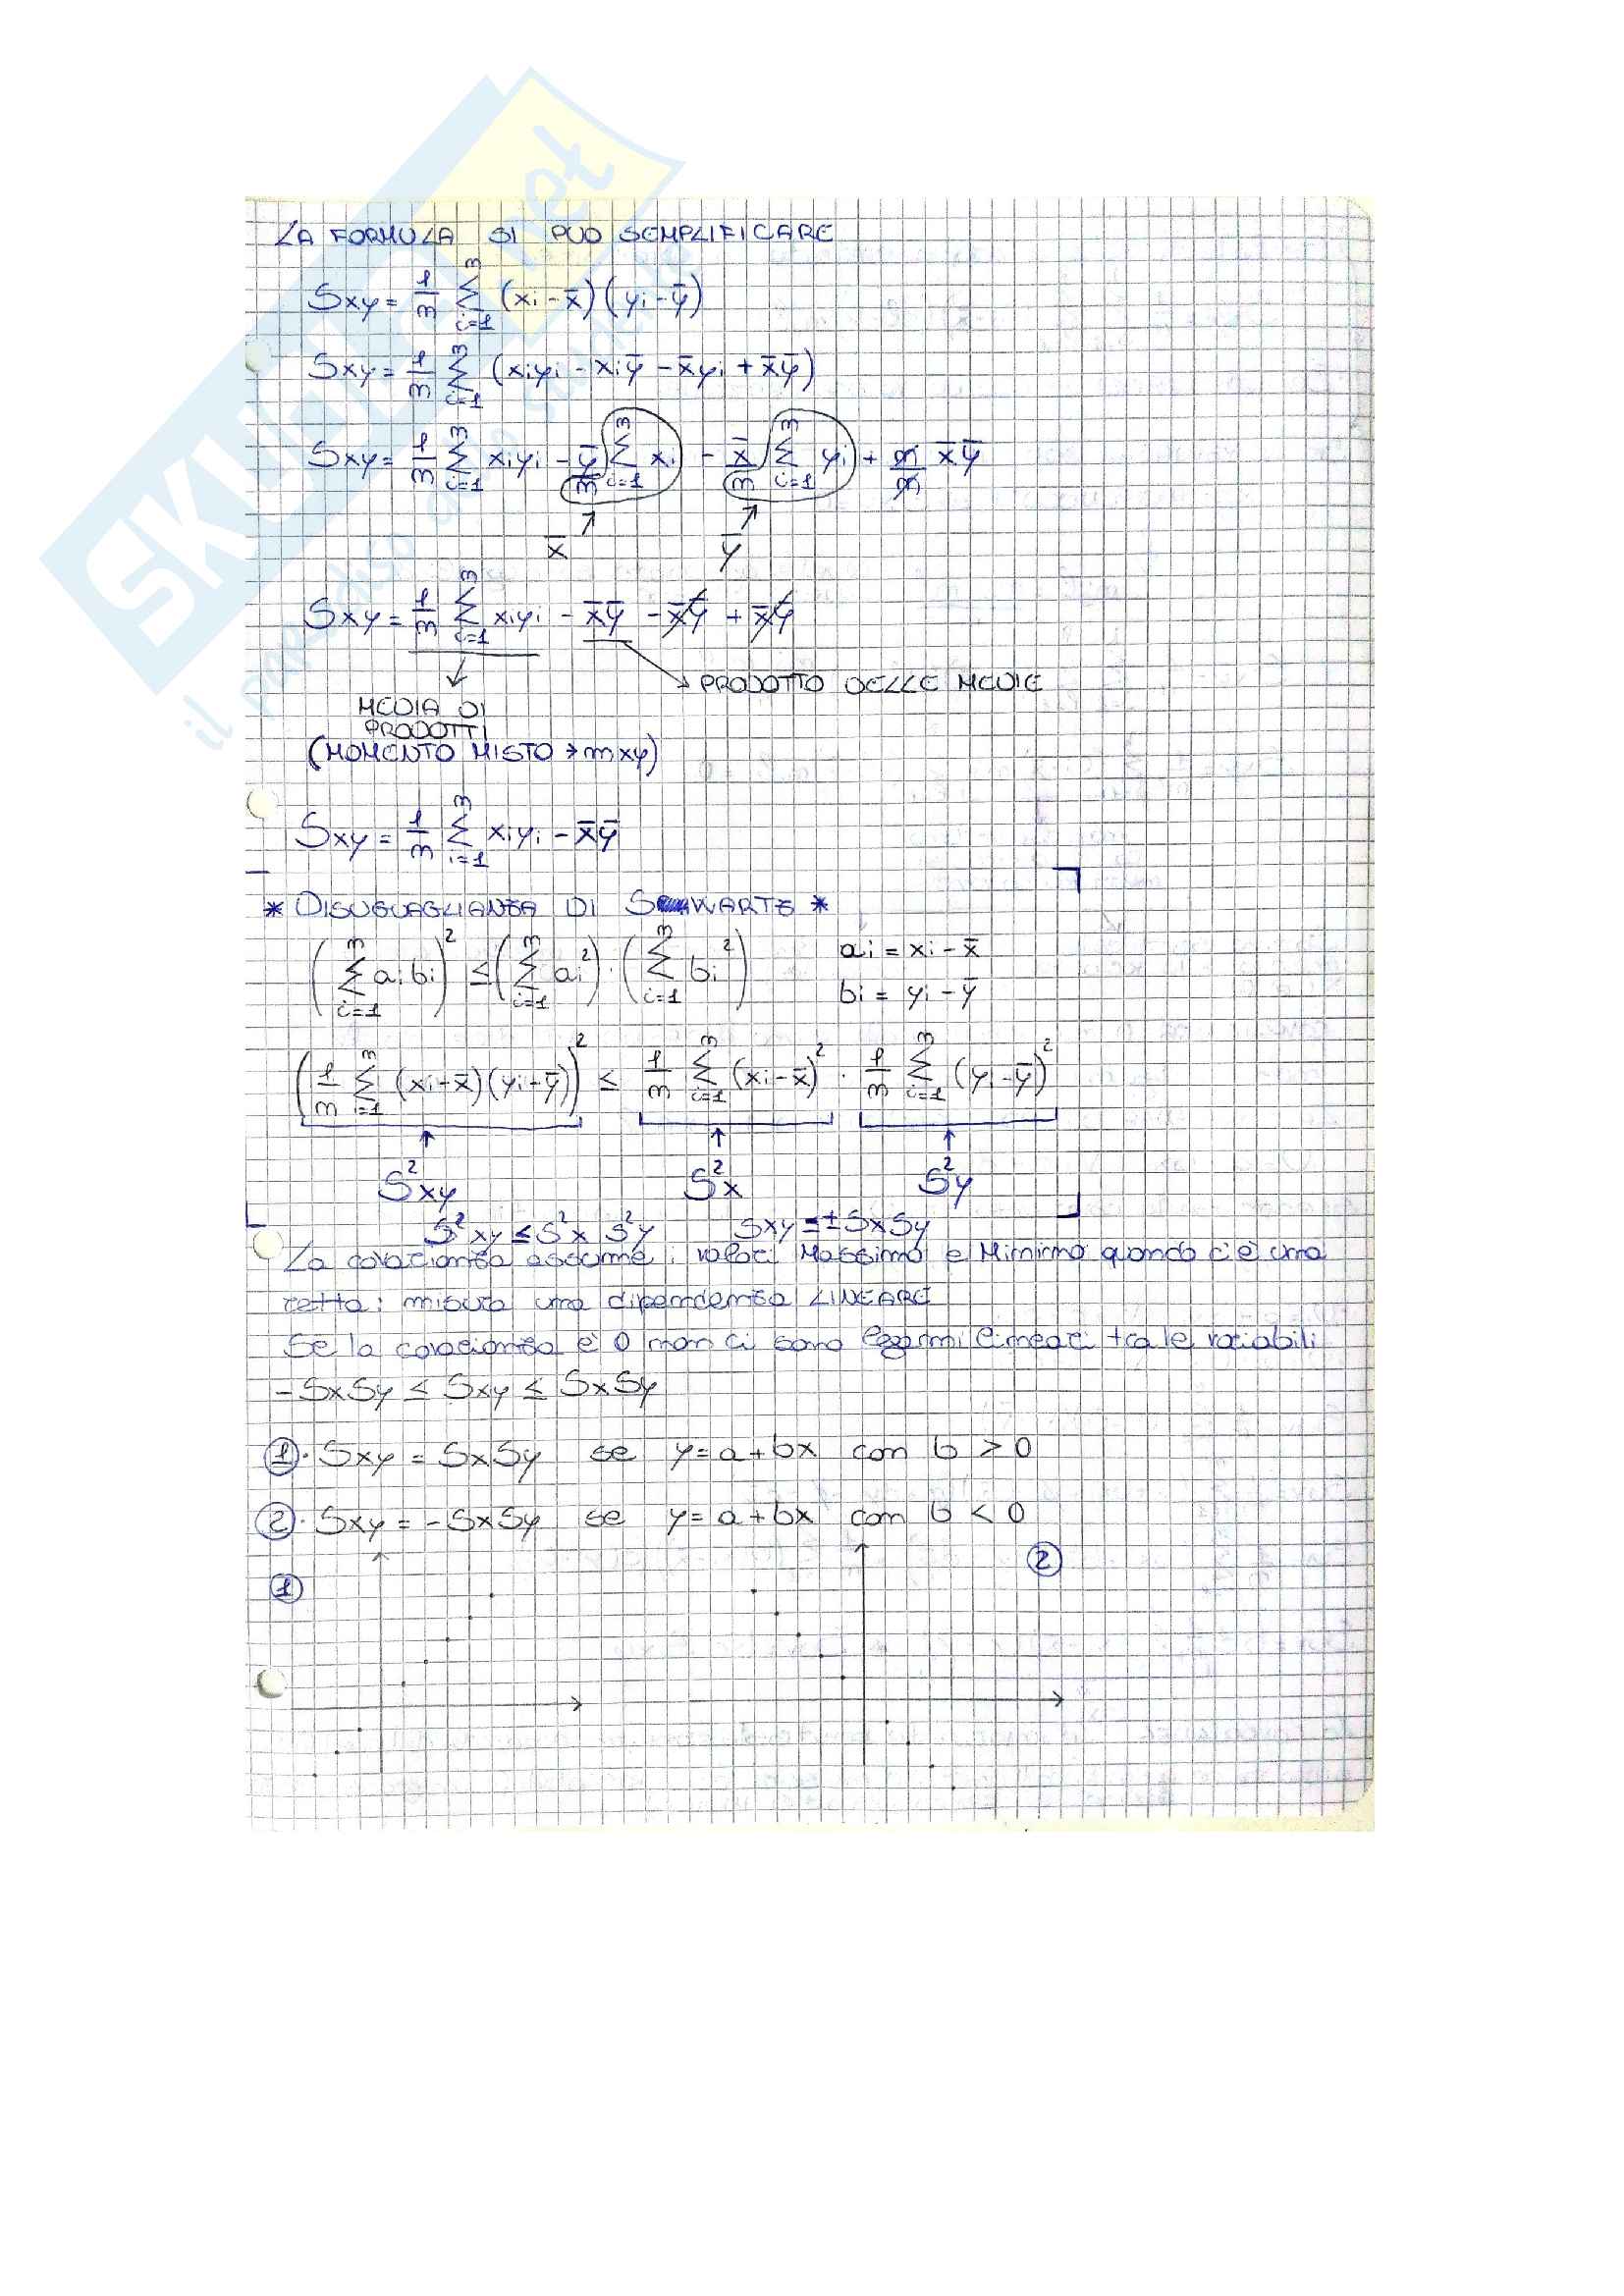 LA FORMULA SI PUO SEMPLIFICARE
Sxy = 1/n Σ_{i=1}^{n} (xi - x̄)(yi - ȳ)
Sxy = 1/n Σ_{i=1}^{n} (xiyi - xiȳ - x̄yi + x̄ȳ)
Sxy = 1/n Σ_{i=1}^{n} xiyi - ȳ/n Σ_{i=1}^{n} xi - x̄/n Σ_{i=1}^{n} yi + n/n x̄ȳ
x̄ ȳ
Sxy = 1/n Σ_{i=1}^{n} xiyi - x̄ȳ - x̄ȳ + x̄ȳ
PRODOTTO DELLE MEDIE
MEDIA DI
PRODOTTI
(MOMENTO MISTO → mxy)
Sxy = 1/n Σ_{i=1}^{n} xiyi - x̄ȳ
* DISUGUAGLIANZA DI SWARTZ *
(Σ_{i=1}^{n} ai bi)² ≤ (Σ_{i=1}^{n} ai²) · (Σ_{i=1}^{n} bi²) ai = xi - x̄
bi = yi - ȳ
(1/n Σ_{i=1}^{n} (xi - x̄)(yi - ȳ))² ≤ 1/n Σ_{i=1}^{n} (xi - x̄)² · 1/n Σ_{i=1}^{n} (yi - ȳ)²
S²xy S²x S²y
S²xy ≤ S²x S²y Sxy ≤ ± SxSy
La covarianza assume i valori Massimo e Minimo quando c'è una
retta: misura una dipendenza LINEARE
Se la covarianza è 0 non ci sono legami lineari tra le variabili
- SxSy ≤ Sxy ≤ SxSy
1 · Sxy = SxSy se y = a + bx con b > 0
2 · Sxy = - SxSy se y = a + bx con b < 0
1 2
SKUOLA.net
il paradiso dello studente